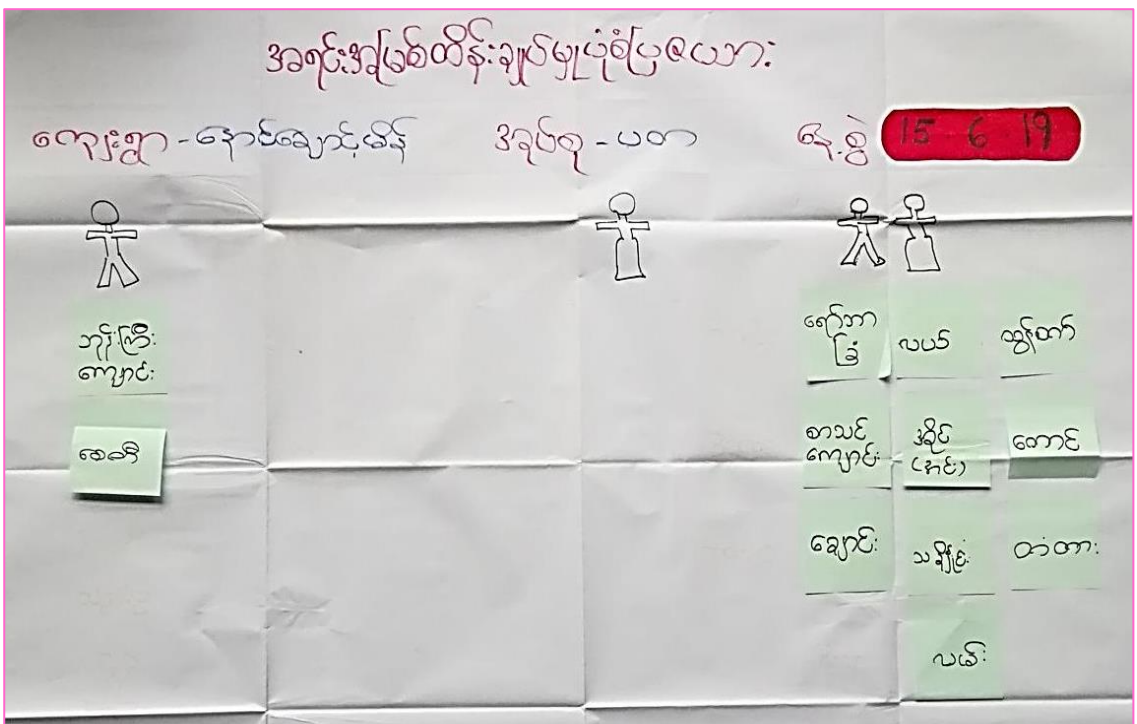 အရင်းအမြစ်ထိန်းချုပ်မှုပုံစံပြဇယား
ကျေးရွာ - နောင်ချောင့်ထိန် အုပ်စု - ပတာ နေ့စွဲ 15 6 19
ဘုန်းကြီး
ကျောင်း
စေတီ
ရော်ဘာ
ခြံ
လယ်
သွန်တာ်
စာသင်
ကျောင်း
အိုင်
(အင်း)
တောင်
ချောင်း
သချိုင်း
တံတား
လမ်း